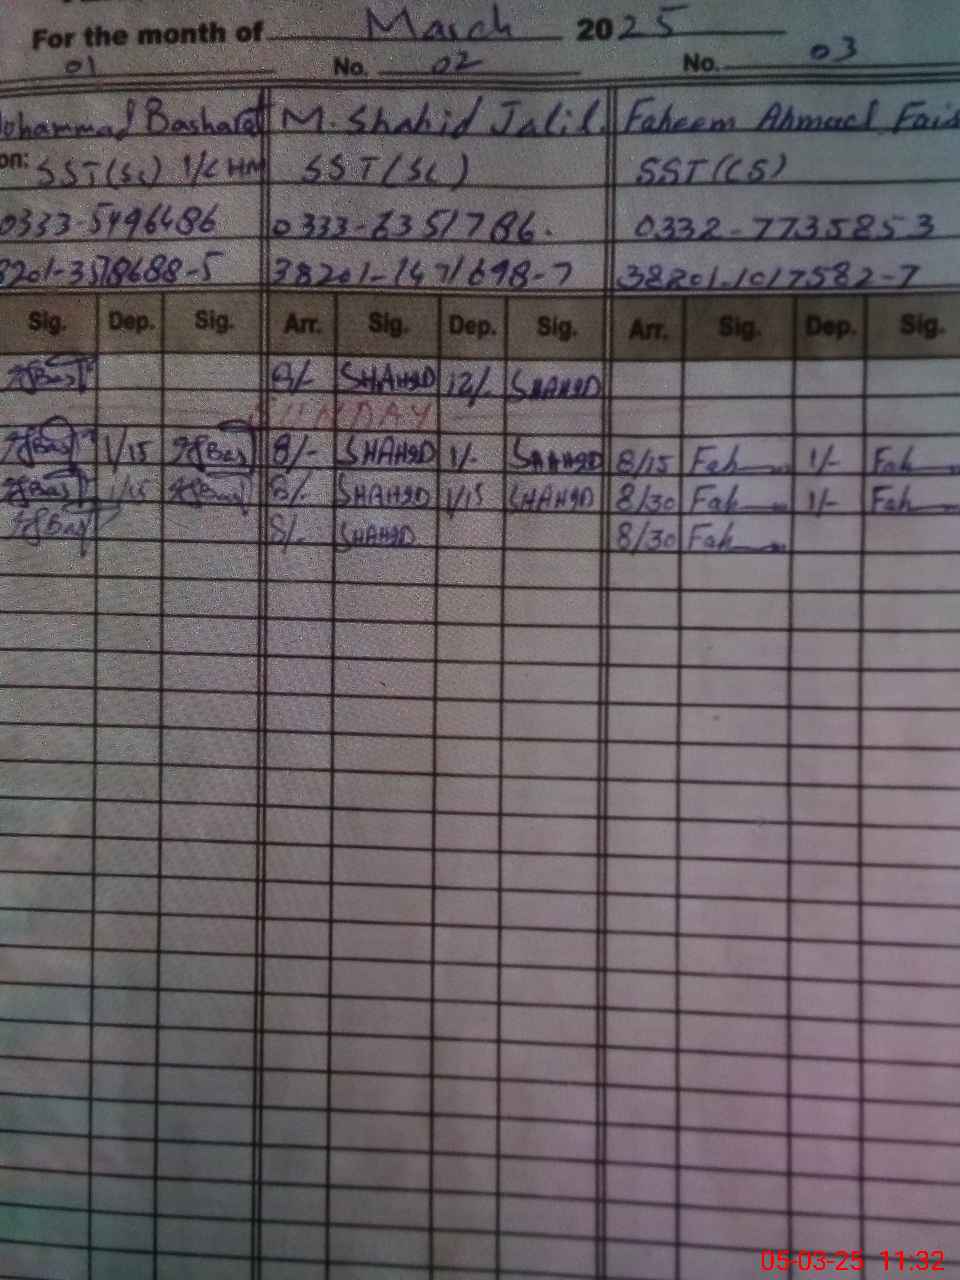 For the month of March 2025
01 No. 02 No. 03
ohammad Basharat M. Shahid Jalil Faheem Ahmad Fais
on: SST(SC) I/C HM SST(SC) SST(CS)
0333-5496486 0333-6351786. 0332-7735853
8201-3578688-5 38201-1471698-7 38201-1017582-7
Sig. Dep. Sig. Arr. Sig. Dep. Sig. Arr. Sig. Dep. Sig.
SHAHID 12/- SHAHID
SUNDAY
1/15 8/- SHAHID 1/- SHAHID 8/15 Fah 1/- Fah
1/15 8/- SHAHID 1/15 SHAHID 8/30 Fah 1/- Fah
8/- SHAHID 8/30 Fah
05-03-25 11:32